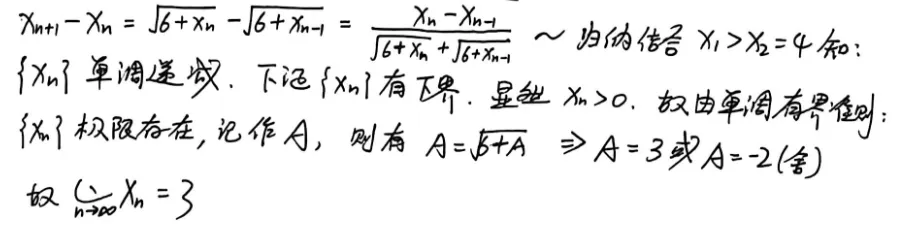 x_{n+1} - x_n = \sqrt{6+x_n} - \sqrt{6+x_{n-1}} = \frac{x_n - x_{n-1}}{\sqrt{6+x_n} + \sqrt{6+x_{n-1}}} ~ 归纳结合 x_1 > x_2 = 4 知:
{x_n} 单调递减. 下证{x_n}有下界. 显然 x_n>0. 故由单调有界准则:
{x_n} 极限存在, 记作 A, 则有 A=\sqrt{6+A} ⇒ A=3 或 A=-2 (舍)
故 \lim_{n→∞} x_n = 3